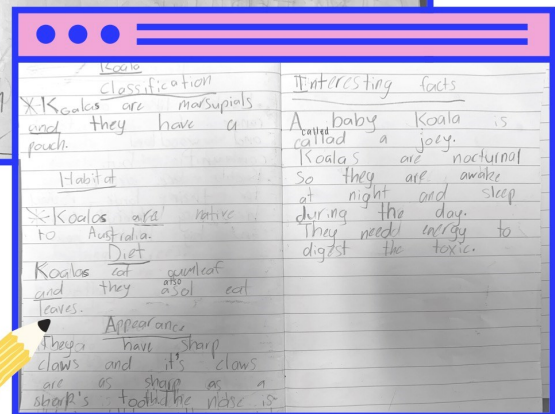 Koala
Classification
Koalas are marsupials
and they have a
pouch.
Habitat
Koalas are native
to Australia.
Diet
Koalas eat gumleaf
and they asol eat
also
leaves.
Appearance
They have sharp
claws and it's claws
are as sharp as a
nose is
Interesting facts
A baby Koala is
called
callad a joey.
Koalas are nocturnal
so they are awake
at night and sleep
during the day.
They need energy to
digest the toxic.